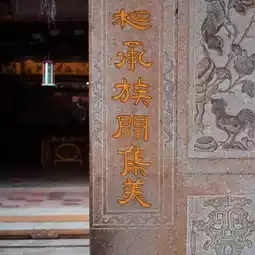 承族開集美